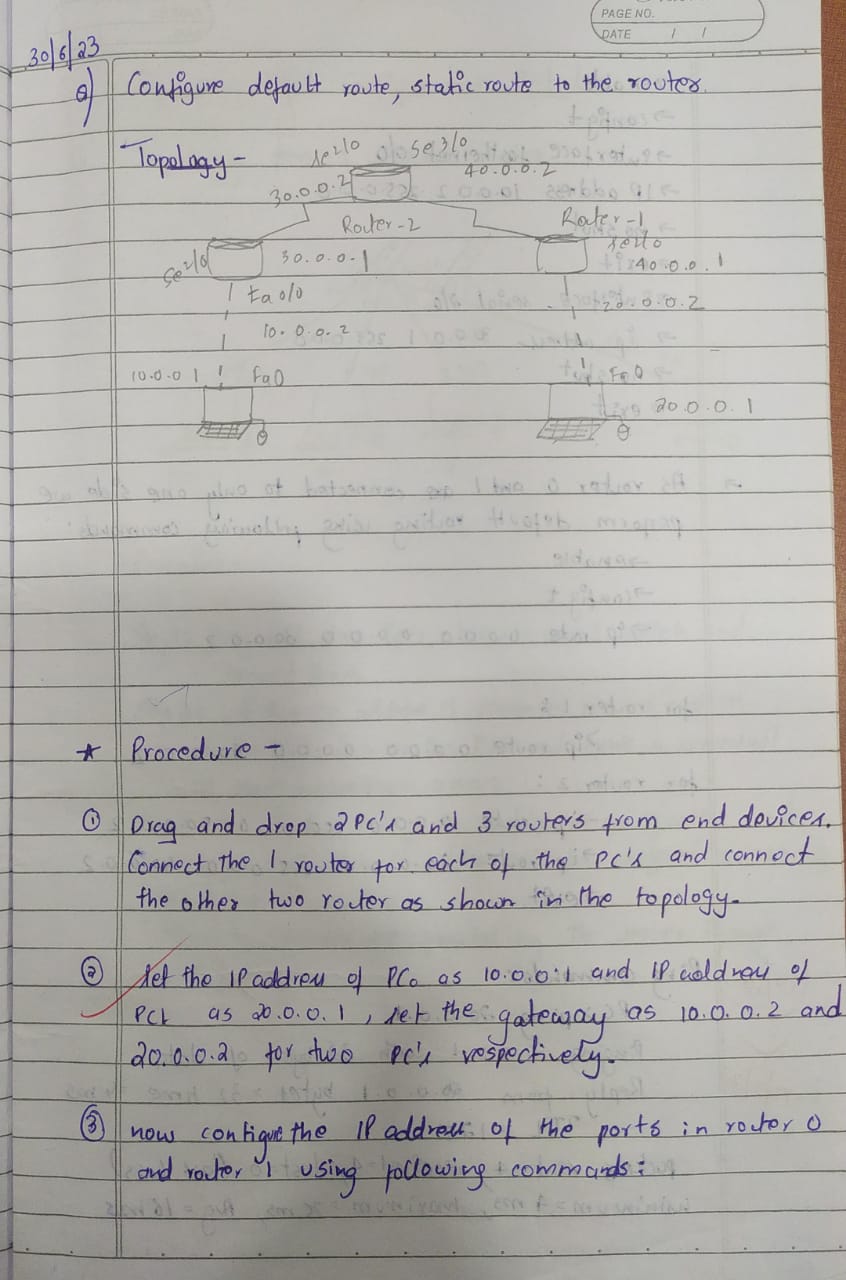 PAGE NO.
DATE / /
30/6/23
Q) Configure default route, static route to the router.
Topology -
se2/0 se3/0
30.0.0.2 40.0.0.2
Router-2 Router-1
se2/0 30.0.0.1 se2/0
40.0.0.1
Fa0/0 20.0.0.2
10.0.0.2
10.0.0 1 Fa0 Fa0
20.0.0.1
* Procedure -
① Drag and drop 2PC's and 3 routers from end devices.
Connect the 1 router for each of the PC's and connect
the other two router as shown in the topology.
② set the IP address of PC0 as 10.0.0.1 and IP address of
PC1 as 20.0.0.1, set the gateway as 10.0.0.2 and
20.0.0.2 for two PC's respectively.
③ now configure the IP address of the ports in router 0
and router 1 using following commands: